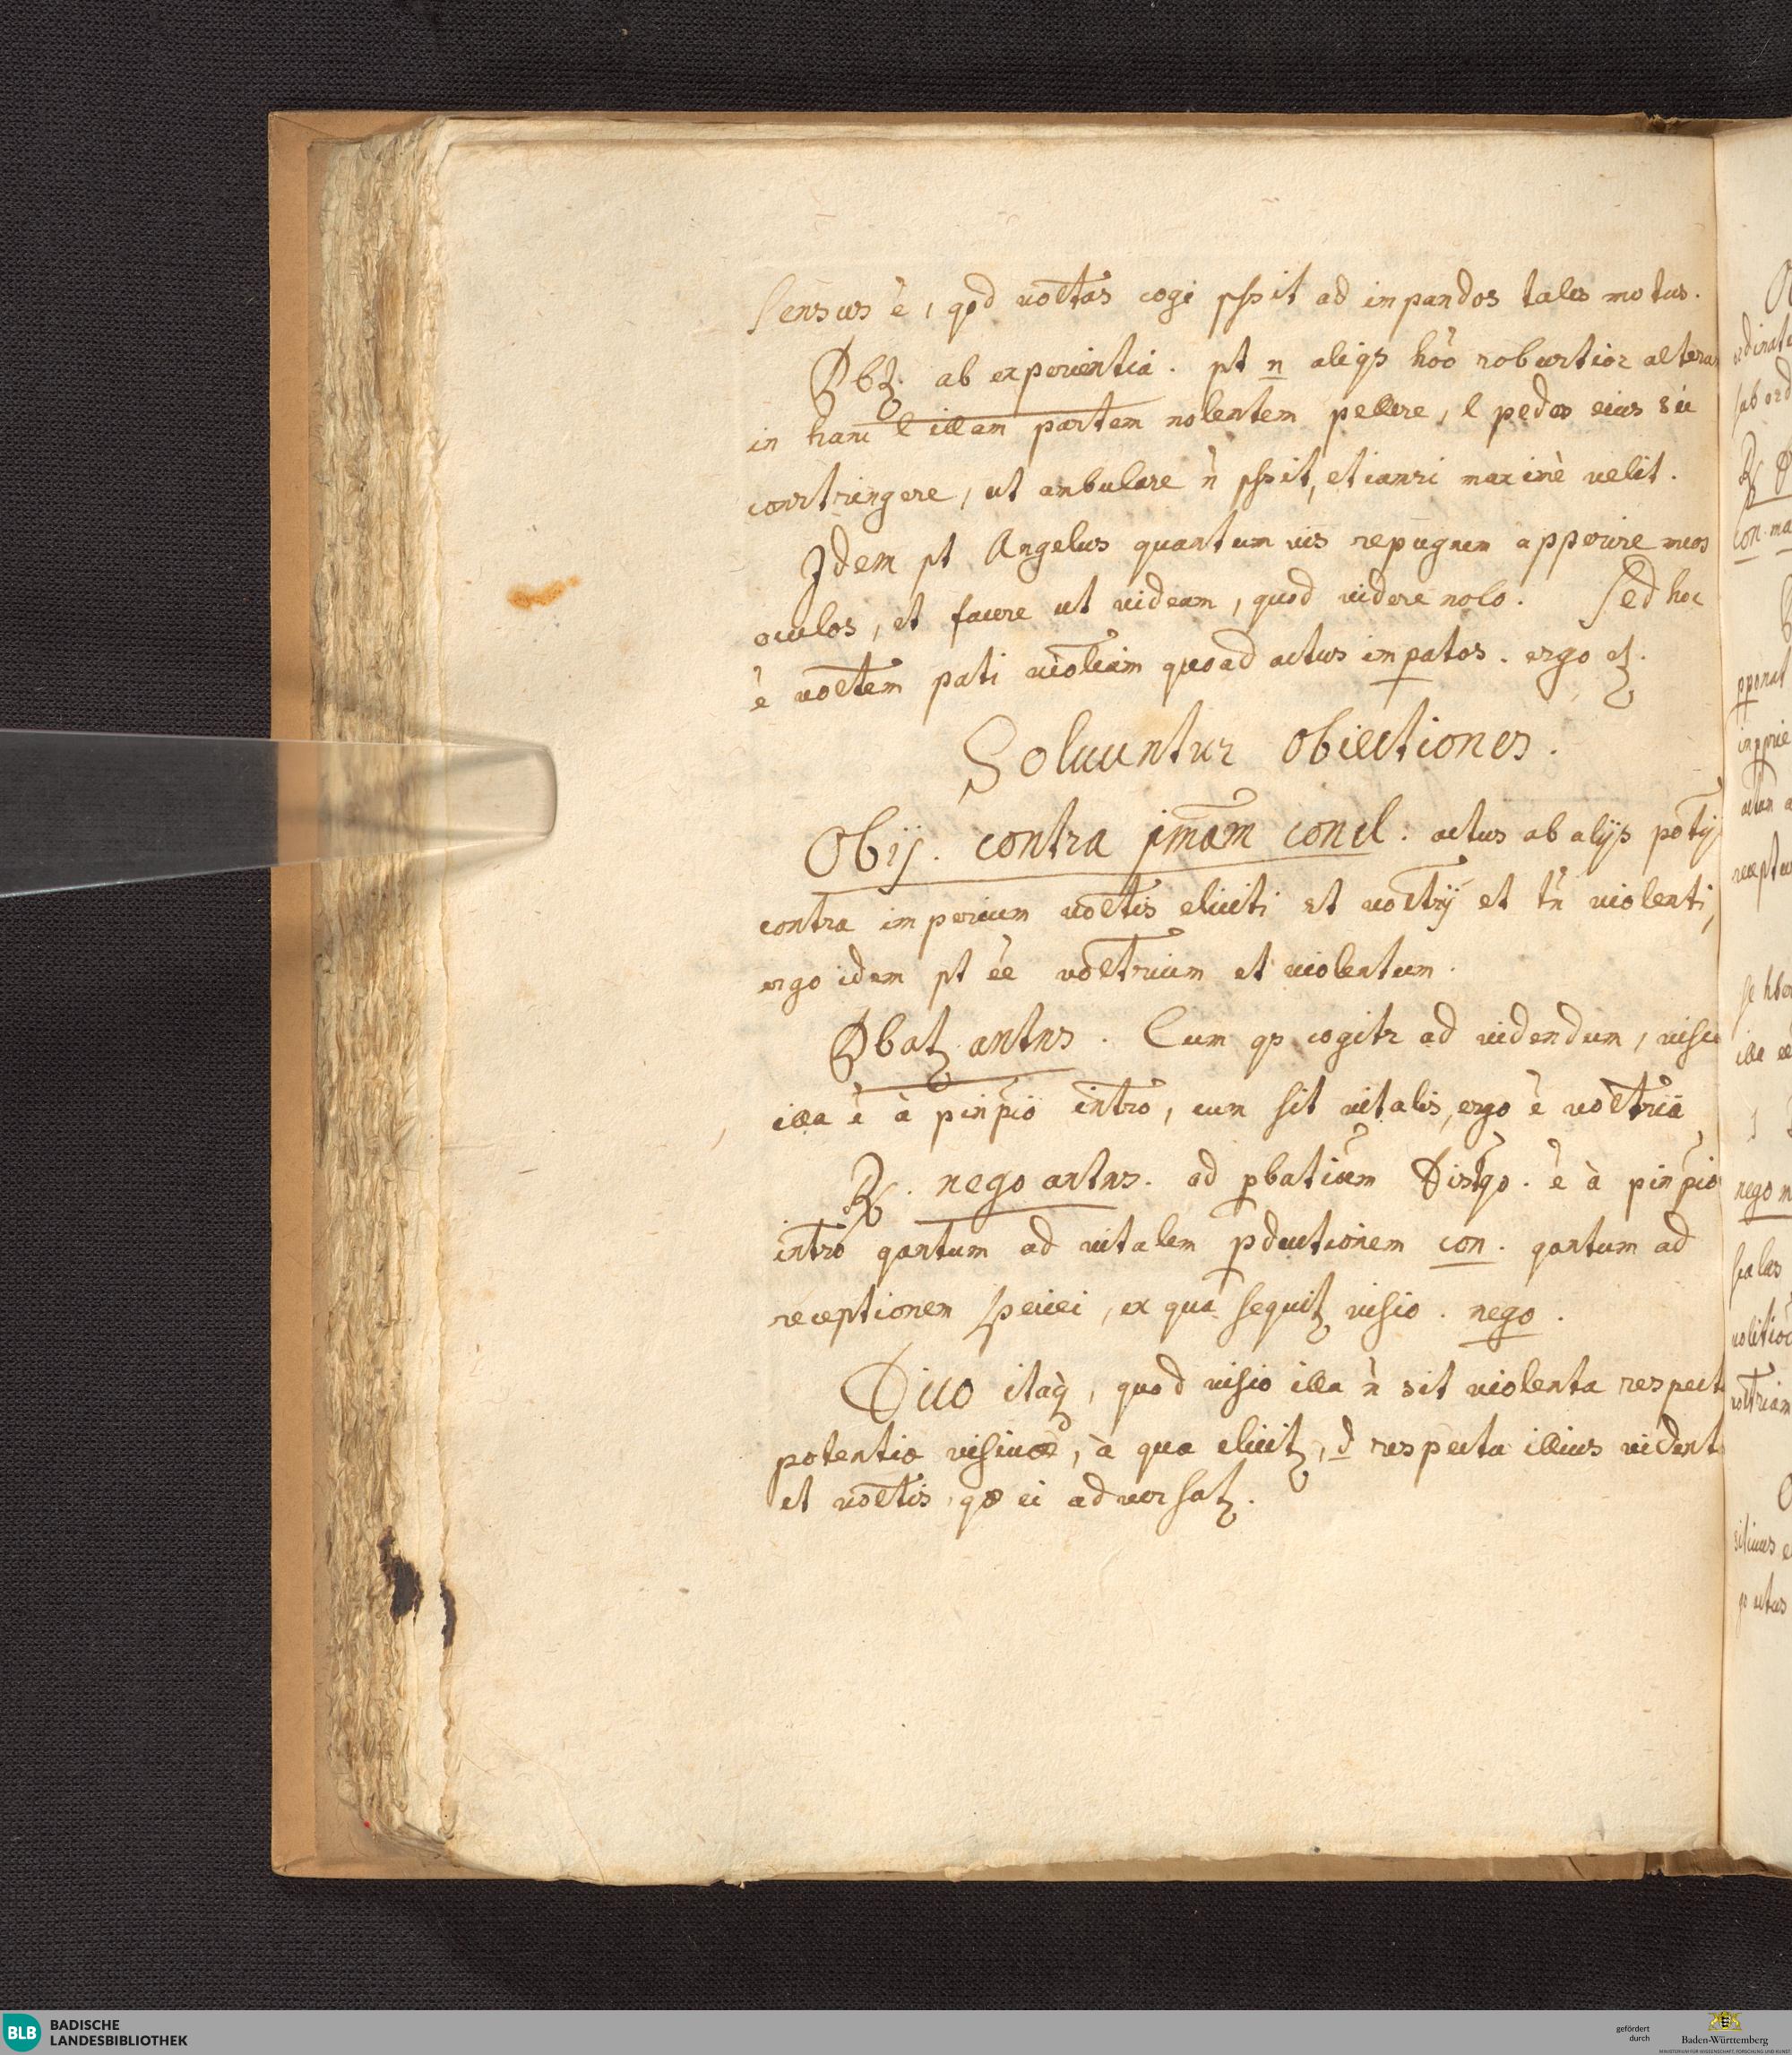 Sensus ē, qod voltas cogi pssit ad inpandos tales motus.
Pbz. ab experientia. pt n aliqs hoō robustior alterum
in hanc l illam partem nolentem pellere, l pedes eius sic
constringere, ut anbulare ñ pssit, etiamsi maximè velit.
Idem pt Angelus quantumvis repugnem apperire meos
oculos, et facere ut videam, quod videre nolo. Sed hoc
ē voltem pati violiam quoad actus impatos. ergo etz.
Soluuntur obiectiones.
Obij. contra pmam concl: actus ab alijs potijs
contra imperium voltis eliciti st voltrij et tñ violenti,
ergo idem pt ēe voltrium et violentum.
Pbatz antns. Cum qs cogitr ad videndum, visio
illa ē à pinpio intro, cum sit vitalis, ergo ē voltria
R. nego antns. ad pbatiōem Distqo. ē à pinpio
intro qantum ad vitalem pductionem con. qantum ad
receptionem speciei, ex qua sequitz visio. nego.
Dico itaq, quod visio illa ñ sit violenta respectu
potentiæ visiuæ, à qua elicitz, d respectu illius videntis
et voltis, qæ ei adversatz.
BLB
BADISCHE
LANDESBIBLIOTHEK
gefördert
durch
Baden-Württemberg